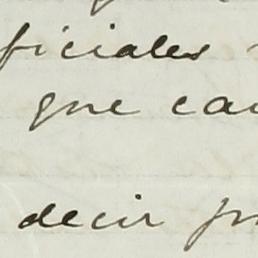 ficiales
que ca
decir p